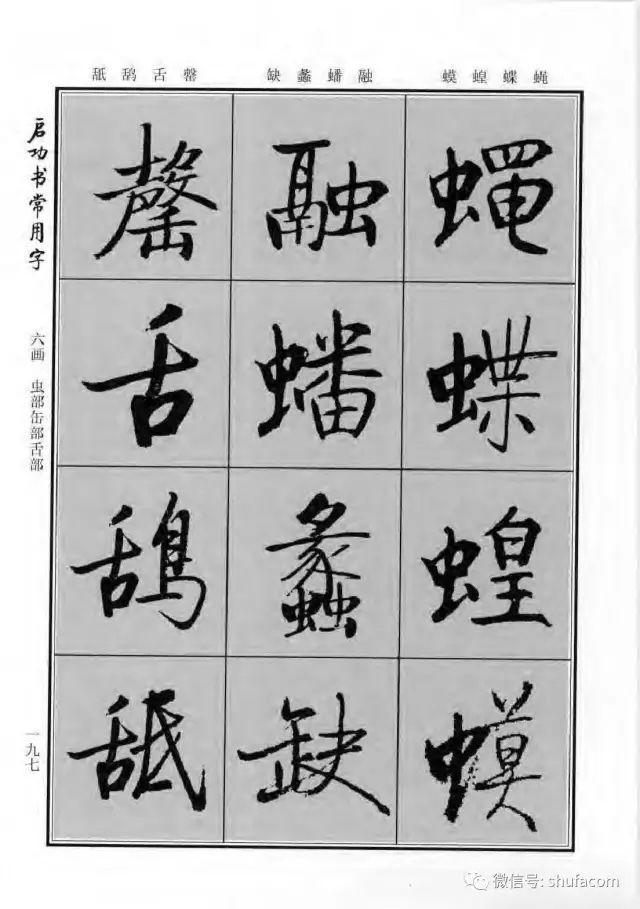 蝇蝶蝗蟆
融蟠蠡缺
罄舌鸹舐
蝇蝶蝗蟆
融蟠蠡缺
罄舌鴰舐
启功书常用字
六画 虫部缶部舌部
一九七
微信号: shufacom